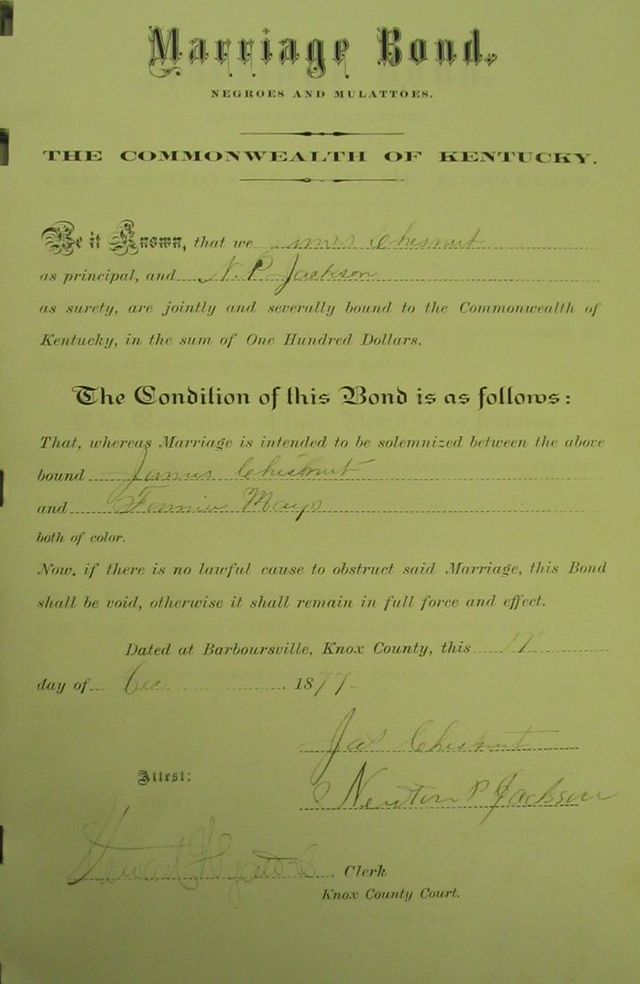 Marriage Bond.
NEGROES AND MULATTOES.
THE COMMONWEALTH OF KENTUCKY.
Be it Known, that we James Chesnut
as principal, and N. P. Jackson
as surety, are jointly and severally bound to the Commonwealth of
Kentucky, in the sum of One Hundred Dollars.
The Condition of this Bond is as follows:
That, whereas Marriage is intended to be solemnized between the above
bound James Chesnut
and Mayo
both of color.
Now, if there is no lawful cause to obstruct said Marriage, this Bond
shall be void, otherwise it shall remain in full force and effect.
Dated at Barboursville, Knox County, this 11"
day of Dec 1877
Jas Chesnut
Attest:
Newton P Jackson
Clerk
Knox County Court.